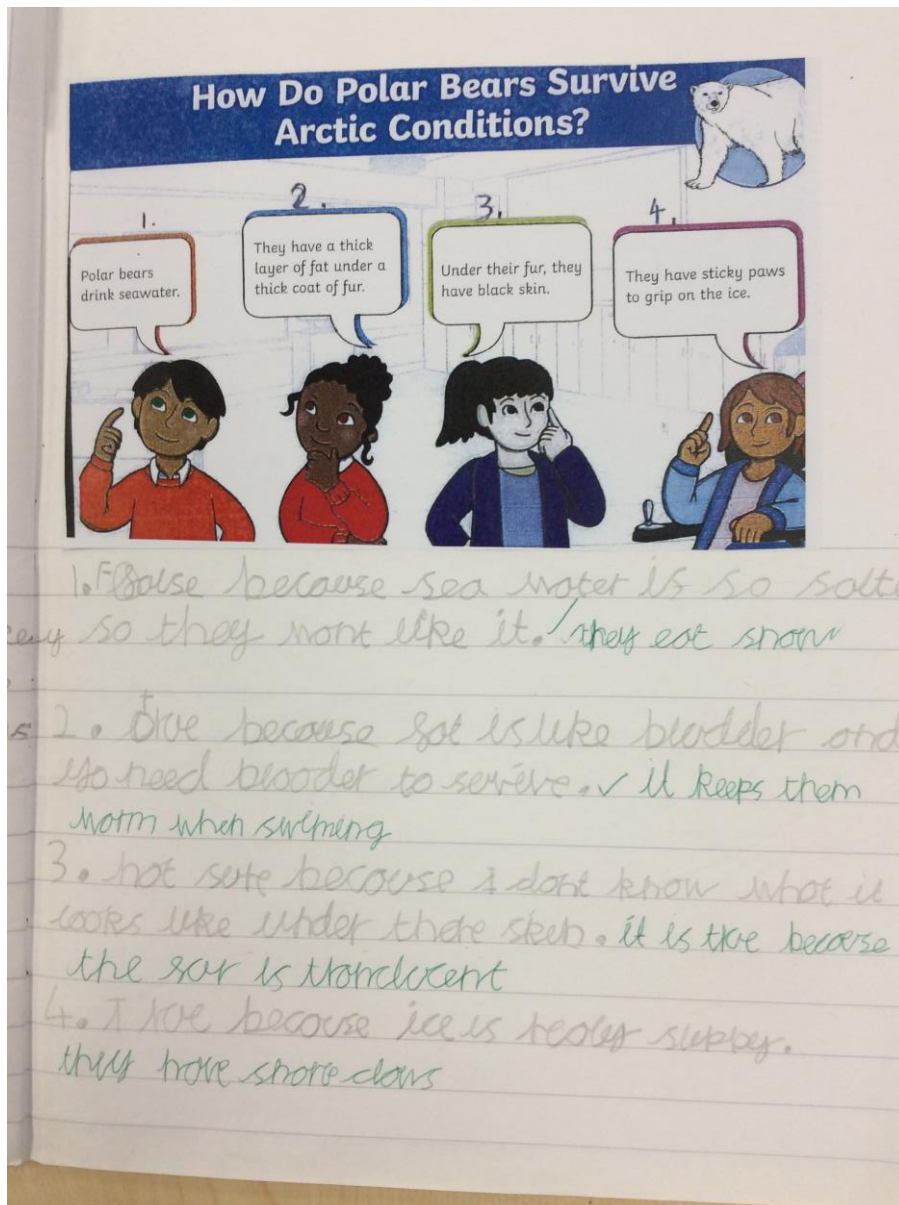 How Do Polar Bears Survive
Arctic Conditions?
1.
2.
3.
4.
Polar bears
drink seawater.
They have a thick
layer of fat under a
thick coat of fur.
Under their fur, they
have black skin.
They have sticky paws
to grip on the ice.
1. Folse because sea water is so salte
so they wont like it. they eat snow
2. true because fat is like bludder and
yo need blooder to servive. ✓ it keeps them
worm when swiming
3. not sure because i dont know what it
looks like under there skin. it is true becaerse
the fur is tronslucent
4. true because ice is realey slippy.
they have